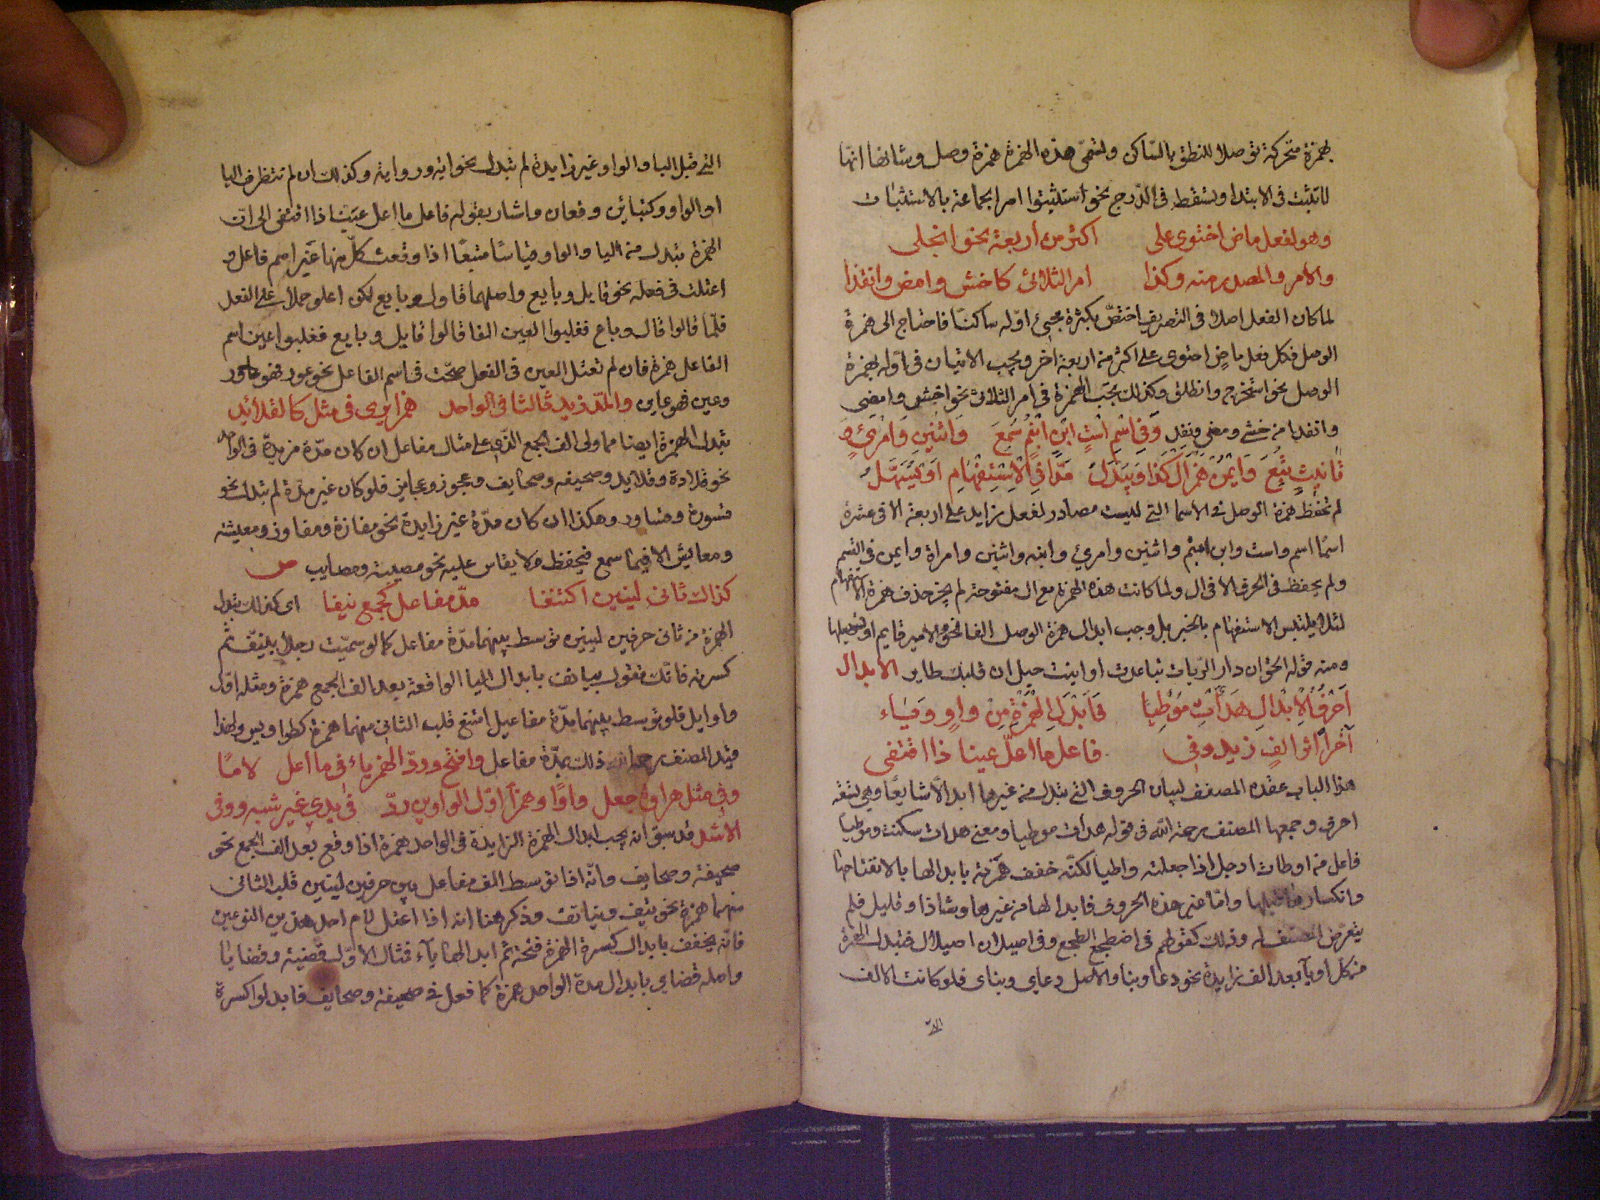 بهمزة متحركة توصلا للنطق بالساكن وتسمى هذه الهمزة همزة وصل وشانها انها
للتثبت فى الابتدا وتسقط فى الدرج نحو استثبتوا امرا لجماعة بالاستثبات
وهو لفعل ماض احتوى على اكثر من اربعة نحو انجلى
والامر والمصدر منه وكذا امر الثلاثى كاخش وامض وانفذا
لما كان الفعل اصلا فى التصريف اختص بكثرة مجئ اوله ساكنا فاحتاج الى همزة
الوصل فكل فعل ماض احتوى على اكثر من اربعة احرف يجب الاتيان فى اوله بهمزة
الوصل نحو استخرج وانطلق وكذلك تجب الهمزة فى امر الثلاثى نحو اخش وامض
وانفذ من خشى ومضى ونفذ وفى اسم است ابن ابنم سمع واثنين وامرئ و
تانيث تبع وايمن همز ال كذا ويبدل مدا فى الاستفهام او يسهل
لم تحفظ همزة الوصل فى الاسما التى ليست مصادر لفعل زايد على اربعة الا فى عشرة
اسما اسم واست وابن وابنم واثنين وامرئ وابنه واثنين وامراة وايمن فى القسم
ولم يحفظ فى الحرف الا فى ال ولما كانت هذه الهمزة مع ال مفتوحة لم يجز حذف همزة الاستفهام
لئلا يلتبس الاستفهام بالخبر بل وجب ابدال همزة الوصل الفا نحو الامير قايم او تسهيلها
ومنه قوله الحق ان دار الرباب تباعدت او انبت حبل ان قلبك طاير الابدال
احرف الابدال هدات موطيا فابدل الهمزة من واو ويا
آخرا اثر الف زيد وفى فاعل ما اعل عينا ذا اقتفى
هذا الباب عقده المصنف لبيان الحروف التى تبدل من غيرها ابدالا شايعا وهى تسعة
احرف وجمعها المصنف رحمة الله فى قوله هدات موطيا ومعنى هدات سكنت وموطيا
فاعل من اوطات الرجل اذا جعلته واطيا لكنه خفف همزته بابدالها يا لانفتاحها
وانكسار ما قبلها واما غير هذه الحروف فابدالها من غيرها شاذ او قليل فلم
يتعرض المصنف له وذلك كقولهم فى اضطجع الطجع وفى اصيلان اصيلال فتبدل الهمزة
من كل واو ويا بعد الف زايدة نحو دعا وبنا والاصل دعاو وبناى فلو كانت الالف
التى قبل اليا والواو غير زايدة لم تبدل نحو اية وراية وكذلك ان لم تتطرف اليا
او الواو كتباين وتعاون واشار بقوله فاعل ما اعل عينا ذا اقتفى الى ان
الهمزة تبدل من اليا والواو قياسا متبعا اذا وقعت كل منهما عين اسم فاعل و
اعتلت فى فعله نحو قايل وبايع واصلهما قاول وبايع لكن اعلوا حملا على الفعل
فلما قالوا قال وباع فقلبوا العين الفا قالوا قايل وبايع فقلبوا عين اسم
الفاعل همزة فان لم تعتل العين فى الفعل صحت فى اسم الفاعل نحو عور فهو عاور
وعين فهو عاين والمد زيد ثالثا فى الواحد همزا يرى فى مثل كالقلايد
تبدل الهمزة ايضا مما ولى الف الجمع الذى على مثال مفاعل ان كان مدة مزيدة فى الواحد
نحو قلادة وقلايد وصحيفه وصحايف وعجوز وعجايز فلو كان غير مدة لم تبدل نحو
قسورة وقساور وهكذا ان كان مدة غير زايدة نحو مفازة ومفاوز ومعيشة
ومعايش الا فيما سمع فيحفظ ولا يقاس عليه نحو مصيبة ومصايب ص
كذاك ثانى لينين اكتنفا مد مفاعل كجمع نيفا اى كذلك تبدل
الهمزة من ثانى حرفين لينين توسط بينهما مدة مفاعل كما لو سميت رجلا بنيف ثم
كسرته فانك تقول نيايف بابدال اليا الواقعة بعد الف الجمع همزة ومثله اول
واوايل فلو توسط بينهما مدة مفاعيل امتنع قلب الثانى منهما همزة كطواويس ولهذا
قيد المصنف رحمه الله ذلك بمدة مفاعل وافتح ورد الهمز يا فى ما اعل لاما
وفى مثل هراوة جعل واوا وهمزا اول الواوين رد فى بدء غير شبه ووفى
الاشد قد سبق انه يجب ابدال الهمزة الزايدة فى الواحد همزة اذا وقع بعد الف الجمع نحو
صحيفة وصحايف وانه اذا توسط الف مفاعل بين حرفين لينين قلب الثانى
منهما همزة نحو نيف ونيايف وذكر هنا انه اذا اعتل لام احد هذين النوعين
فانه يخفف بابدال كسرة الهمزة فتحة ثم ابدالها يآء فمثال الاول قضية وقضايا
واصله قضاى بابدال مدة الواحد همزة كما فعل فى صحيفة وصحايف فابدلوا كسرة